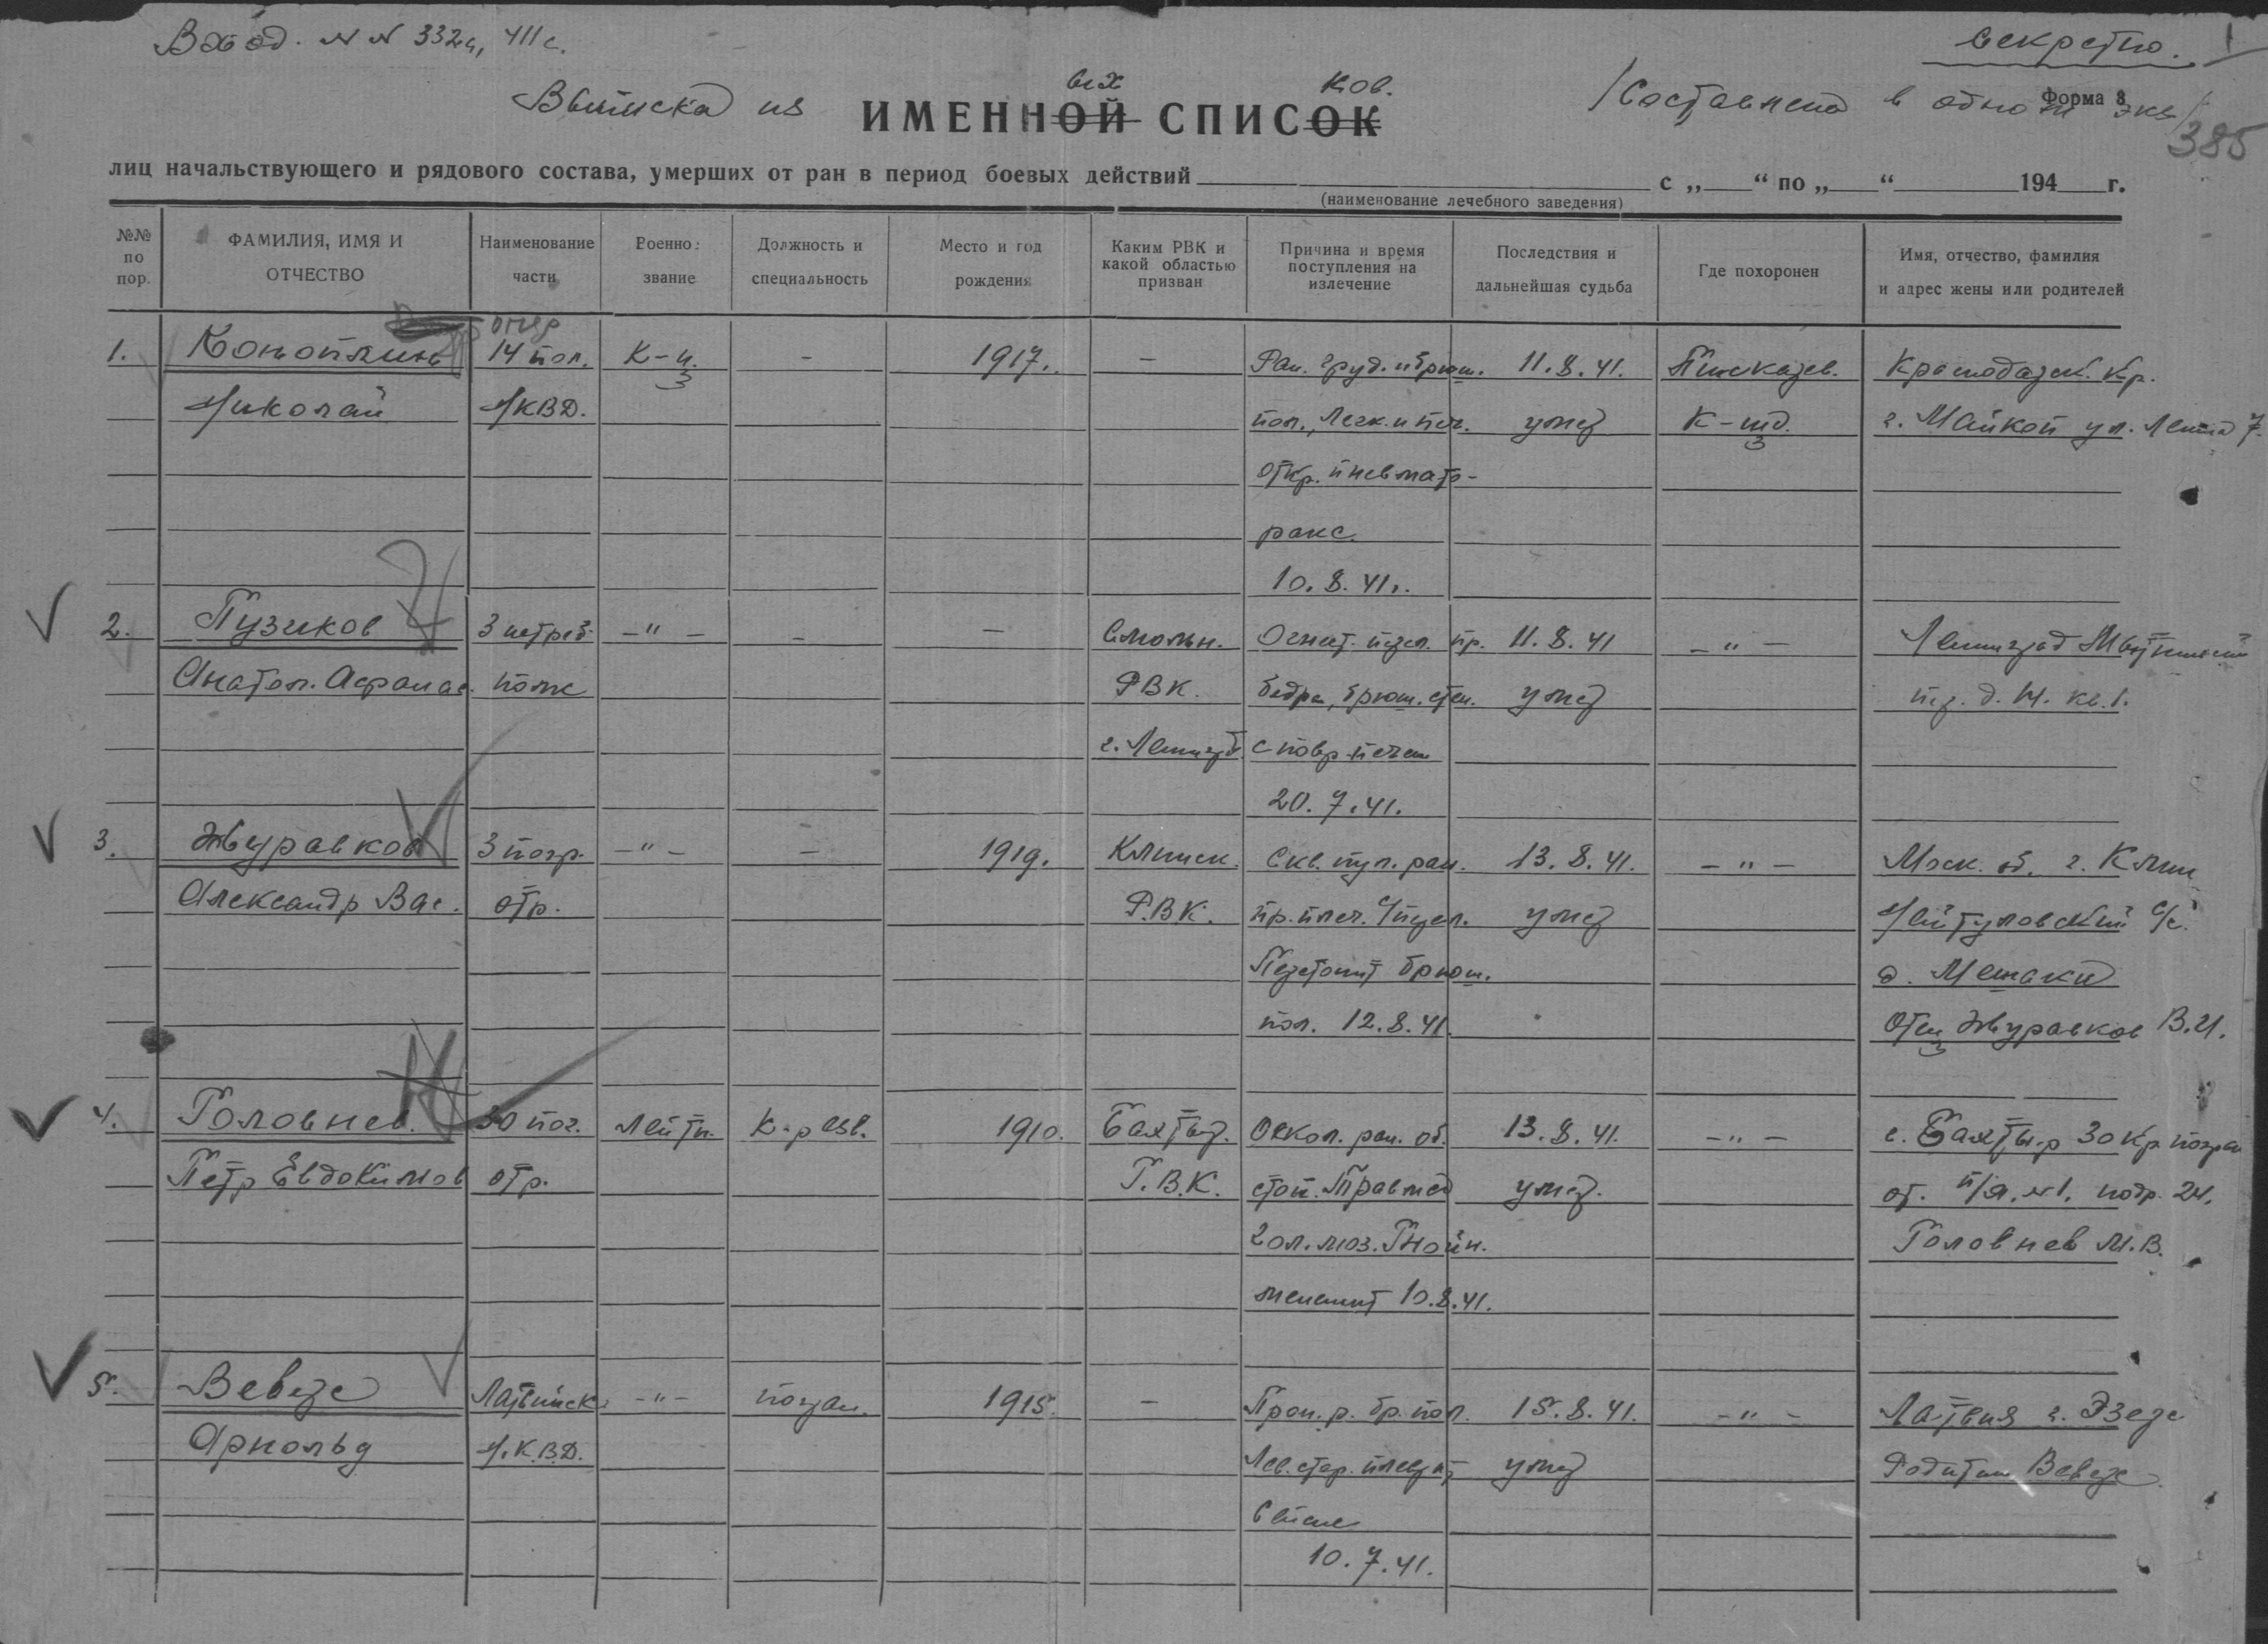 Вход. № № 332с, 411с.
Секретно.
1
Выписка из ИМЕННОЙ ых СПИСОК ков.
/Составлена в одном экз/
Форма 8
385
лиц начальствующего и рядового состава, умерших от ран в период боевых действий с „ “ по „ “ 194 г.
(наименование лечебного заведения)
№№ по пор.
ФАМИЛИЯ, ИМЯ И ОТЧЕСТВО
Наименование части
Военное звание
Должность и специальность
Место и год рождения
Каким РВК и какой областью призван
Причина и время поступления на излечение
Последствия и дальнейшая судьба
Где похоронен
Имя, отчество, фамилия и адрес жены или родителей
опер
1. 14 пол. К-ц. - 1917. - Ран. груд. и брюш. 11.8.41. Пискарев. Краснодарск. Кр.
Николай НКВД. пол., Легк. и печ. умер К-щ. г. Майкоп ул. Ленина 7.
откр. пневмато-
ракс.
10.8.41.
2. Пузиков 3 истреб. -"- - - Смольн. Огнестр. пр. 11.8.41 -"- Ленинград
Анатол. Афанас. полк РВК. бедра, брюш. стен. умер д. 14. кв. 1.
г. Ленингр. с повр. печени
20.7.41.
3. Журавков 3 погр. -"- - 1919. Клинск. Скв. пул. ран. 13.8.41. -"- Моск. об. г. Клин
Александр Вас. отр. Р.В.К. пр. плеч. умер с/с.
Перетонит брюш. д. Мешаки
пол. 12.8.41. Отец Журавков В.И.
4. Головнев. 30 пог. Лейтн. К-р взв. 1910. Бахты. Оскол. ран. об. 13.8.41. -"- с. Бахты 30 Кр погран
Петр Евдокимов отр. Г.В.К. стоп. Травмед умер. от. п/я. №1. подр. 24.
гол. моз. Гнойн. Головнев М.В.
мененгит 10.8.41.
5. Вевере Латвийск. -"- погран. 1915. - Прон. р. бр. пол. 15.8.41. -"- Латвия г. Эзере
Арнольд Н.К.В.Д. Лев. стор. плеврит умер Родители Вевере.
10.7.41.